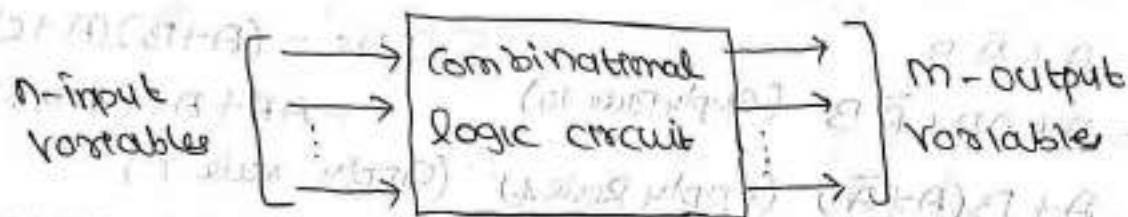 n-input
variables
combinational
logic circuit
m-output
variable